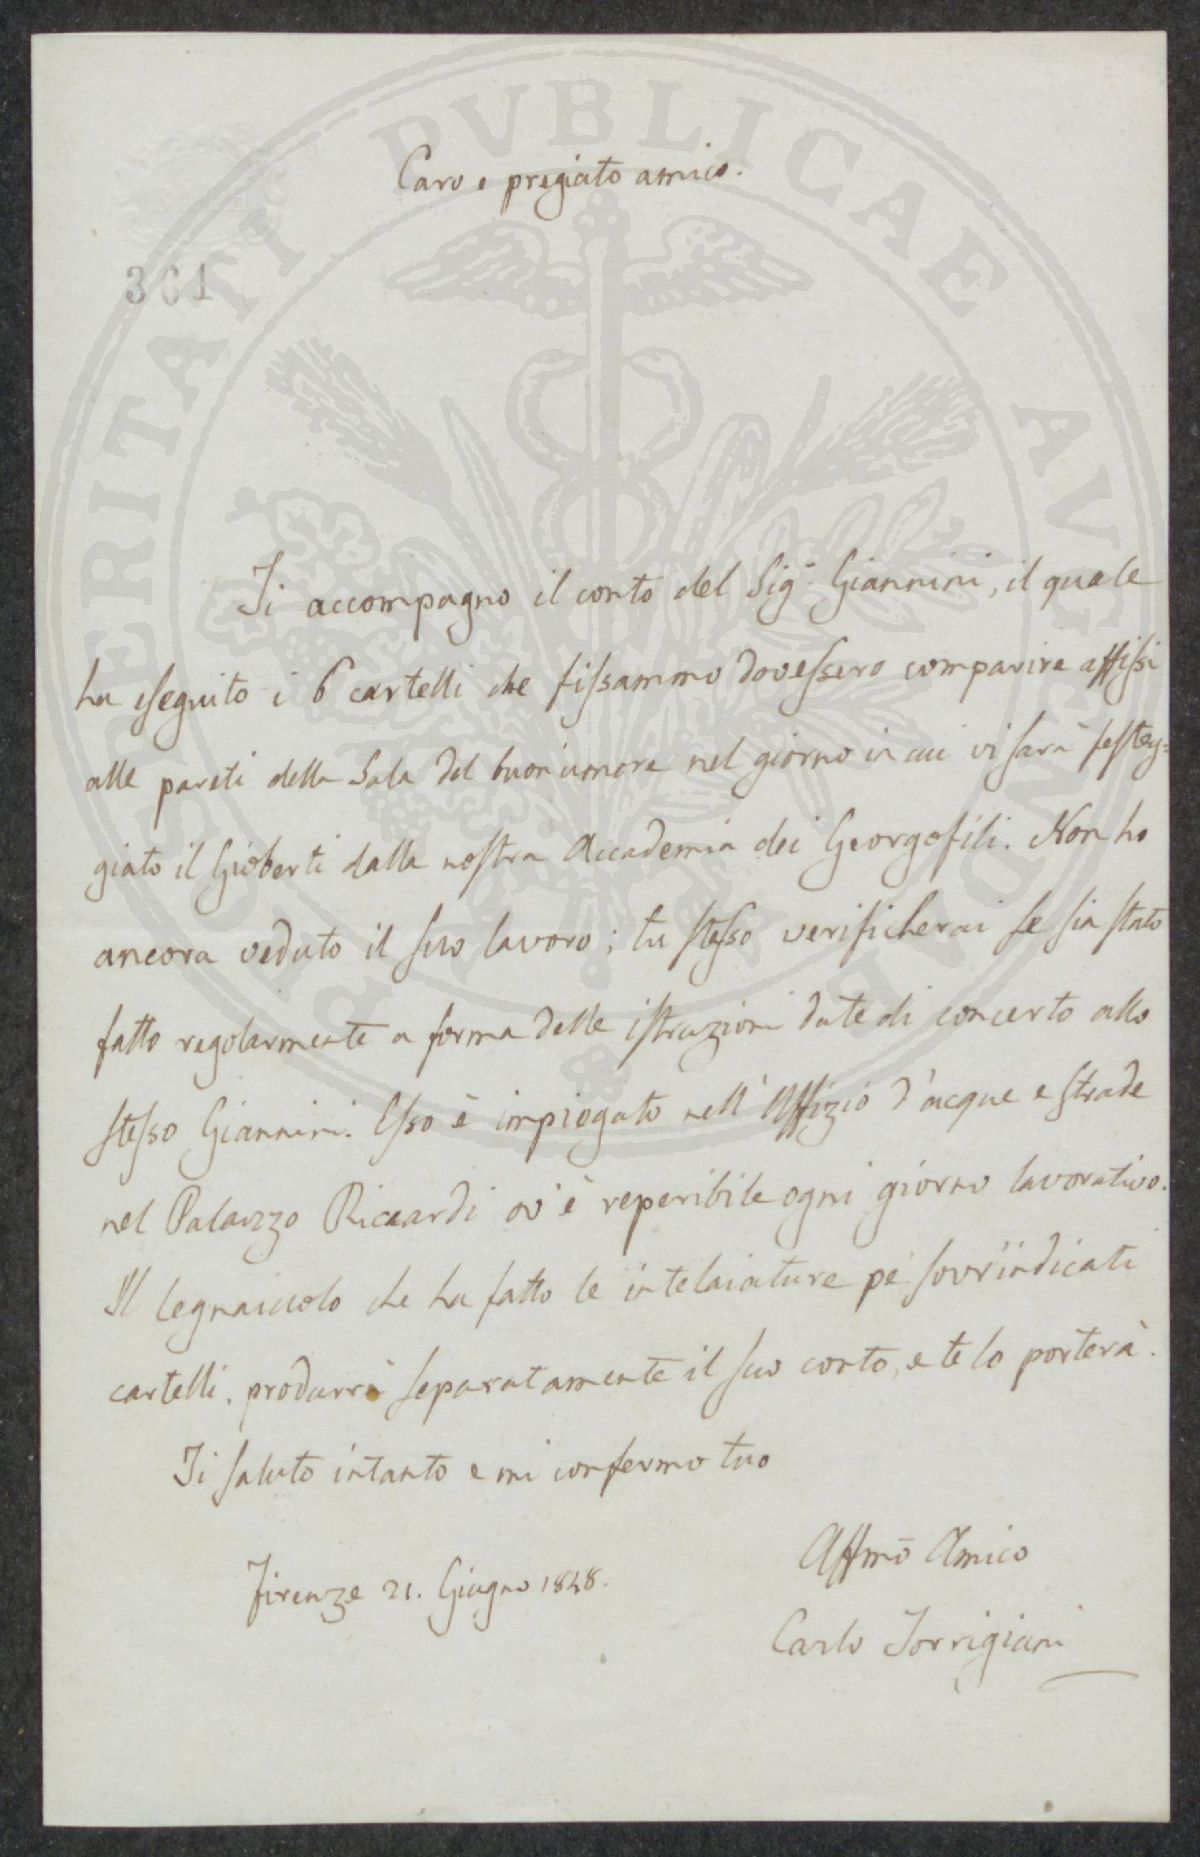 PROSPERITATI PVBLICAE AVGENDAE
Caro e pregiato amico.
361
Ti accompagno il conto del Sig.r Giannini, il quale
ha eseguito i 6 cartelli che fissammo dovessero comparire affissi
alle pareti della Sala del buonumore nel giorno in cui vi sarà festeg=
giato il Gioberti dalla nostra Accademia dei Georgofili. Non ho
ancora veduto il suo lavoro; tu stesso verificherai se sia stato
fatto regolarmente a forma delle istruzioni date di concerto allo
stesso Giannini. Esso è impiegato nell'Uffizio d'acque e strade
nel Palazzo Riccardi ov'è reperibile ogni giorno lavorativo.
Il legnaiuolo che ha fatto le intelaiature pe' sovr'indicati
cartelli, produrrà separatamente il suo conto, e te lo porterà.
Ti saluto intanto e mi confermo tuo
Affmo Amico
Firenze 21. Giugno 1848.
Carlo Torrigiani